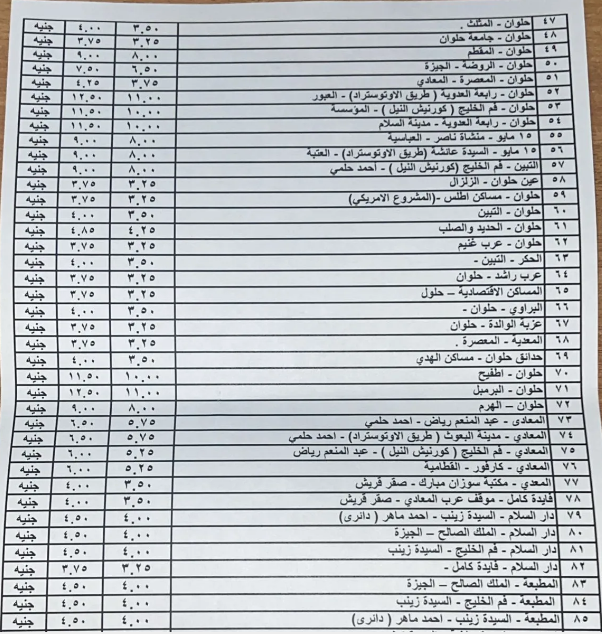 ٤٧ حلوان - المثلث . ٣.٥٠ ٤.٠٠ جنيه
٤٨ حلوان - جامعة حلوان ٣.٢٥ ٣.٧٥ جنيه
٤٩ حلوان - المقطم ٨.٠٠ ٩.٠٠ جنيه
٥٠ حلوان - الروضة - الجيزة ٦.٥٠ ٧.٥٠ جنيه
٥١ حلوان - المعصرة - المعادي ٣.٧٥ ٤.٢٥ جنيه
٥٢ حلوان - رابعة العدوية ( طريق الاوتوستراد) - العبور ١١.٠٠ ١٢.٥٠ جنيه
٥٣ حلوان - فم الخليج ( كورنيش النيل ) - المؤسسة ١٠.٠٠ ١١.٥٠ جنيه
٥٤ حلوان - رابعة العدوية - مدينة السلام ١٠.٠٠ ١١.٥٠ جنيه
٥٥ ١٥ مايو - منشاة ناصر - العباسية ٨.٠٠ ٩.٠٠ جنيه
٥٦ ١٥ مايو - السيدة عائشة (طريق الاوتوستراد) - العتبة ٨.٠٠ ٩.٠٠ جنيه
٥٧ التبين - فم الخليج (كورنيش النيل ) - احمد حلمي ٨.٠٠ ٩.٠٠ جنيه
٥٨ عين حلوان - الزلزال ٣.٢٥ ٣.٧٥ جنيه
٥٩ حلوان - مساكن اطلس -(المشروع الامريكي) ٣.٢٥ ٣.٧٥ جنيه
٦٠ حلوان - التبين ٣.٥٠ ٤.٠٠ جنيه
٦١ حلوان - الحديد والصلب ٤.٢٥ ٤.٨٥ جنيه
٦٢ حلوان - عرب غنيم ٣.٢٥ ٣.٧٥ جنيه
٦٣ الحكر - التبين - ٣.٥٠ ٤.٠٠ جنيه
٦٤ عرب راشد - حلوان ٣.٢٥ ٣.٧٥ جنيه
٦٥ المساكن الاقتصادية – حلول ٣.٢٥ ٣.٧٥ جنيه
٦٦ البراوي - حلوان - ٣.٥٠ ٤.٠٠ جنيه
٦٧ عزبة الوالدة - حلوان ٣.٢٥ ٣.٧٥ جنيه
٦٨ المعدية - المعصرة . ٣.٢٥ ٣.٧٥ جنيه
٦٩ حدائق حلوان - مساكن الهدي ٣.٥٠ ٤.٠٠ جنيه
٧٠ حلوان - اطفيح ١٠.٠٠ ١١.٥٠ جنيه
٧١ حلوان - البرمبل ١١.٠٠ ١٢.٥٠ جنيه
٧٢ حلوان – الهرم ٨.٠٠ ٩.٠٠ جنيه
٧٣ المعادى - عبد المنعم رياض - احمد حلمي ٥.٧٥ ٦.٥٠ جنيه
٧٤ المعادي - مدينة البعوث ( طريق الاوتوستراد) - احمد حلمي ٥.٧٥ ٦.٥٠ جنيه
٧٥ المعادي - فم الخليج ( كورنيش النيل ) - عبد المنعم رياض ٥.٢٥ ٦.٠٠ جنيه
٧٦ المعادي - كارفور - القطامية ٥.٢٥ ٦.٠٠ جنيه
٧٧ المعدي - مكتبة سوزان مبارك - صقر قريش ٣.٥٠ ٤.٠٠ جنيه
٧٨ فايدة كامل - موقف عرب المعادي - صقر قريش ٣.٥٠ ٤.٠٠ جنيه
٧٩ دار السلام - السيدة زينب - احمد ماهر ( دائرى) ٤.٠٠ ٤.٥٠ جنيه
٨٠ دار السلام - الملك الصالح – الجيزة ٤.٠٠ ٤.٥٠ جنيه
٨١ دار السلام - فم الخليج - السيدة زينب ٤.٠٠ ٤.٥٠ جنيه
٨٢ دار السلام - فايدة كامل - ٣.٢٥ ٣.٧٥ جنيه
٨٣ المطبعة - الملك الصالح – الجيزة ٤.٠٠ ٤.٥٠ جنيه
٨٤ المطبعة - فم الخليج - السيدة زينب ٤.٠٠ ٤.٥٠ جنيه
٨٥ المطبعة - السيدة زينب - احمد ماهر ( دائرى) ٤.٠٠ ٤.٥٠ جنيه